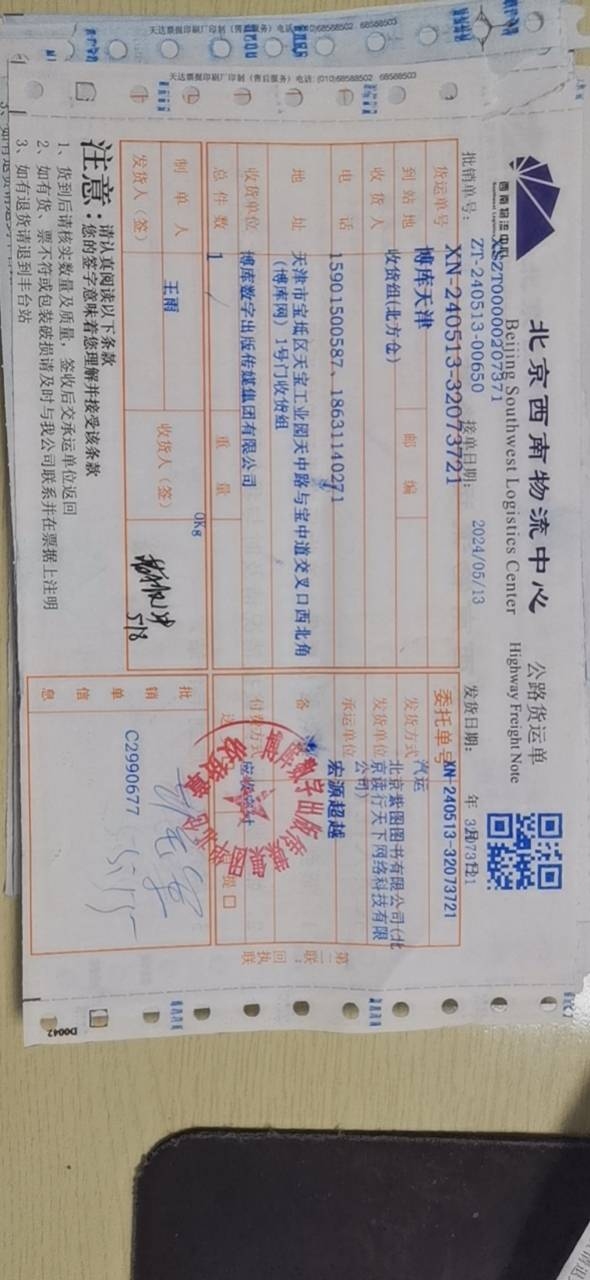 天达票据印刷厂印制（售后服务）电话：(010)68588502 68588503
西南物流中心
北京西南物流中心 公路货运单
Beijing Southwest Logistics Center Highway Freight Note
XSZT00000207371
批销单号： ZT-240513-00650 接单日期： 2024/05/13 发货日期： 年 月 日
货运单号 XN-240513-32073721 委托单号 XN-240513-32073721
到站地 博库天津 邮编 发货方式 汽运
收货人 收货组(北方仓) 发货单位 北京紫图图书有限公司(北京读行天下网络科技有限公司))
电话 15901500587、18631140271 承运单位 宏源超越
地址 天津市宝坻区天宝工业园天中路与宝中道交叉口西北角(博库网）1号门收货组 备
收货单位 博库数字出版传媒集团有限公司 付费方式
总件数 1 重量 0Kg 送 提 口
制单人 王雨 收货人（签） 5/8
发货人（签）
批销单信息 C2990677
第二联：回执联
注意：请认真阅读以下条款
您的签字意味着您理解并接受该条款
1、货到后请核实数量及质量，签收后交承运单位返回
2、如有货、票不符或包装破损请及时与我公司联系并在票据上注明
3、如有退货请退到丰台站
D0042